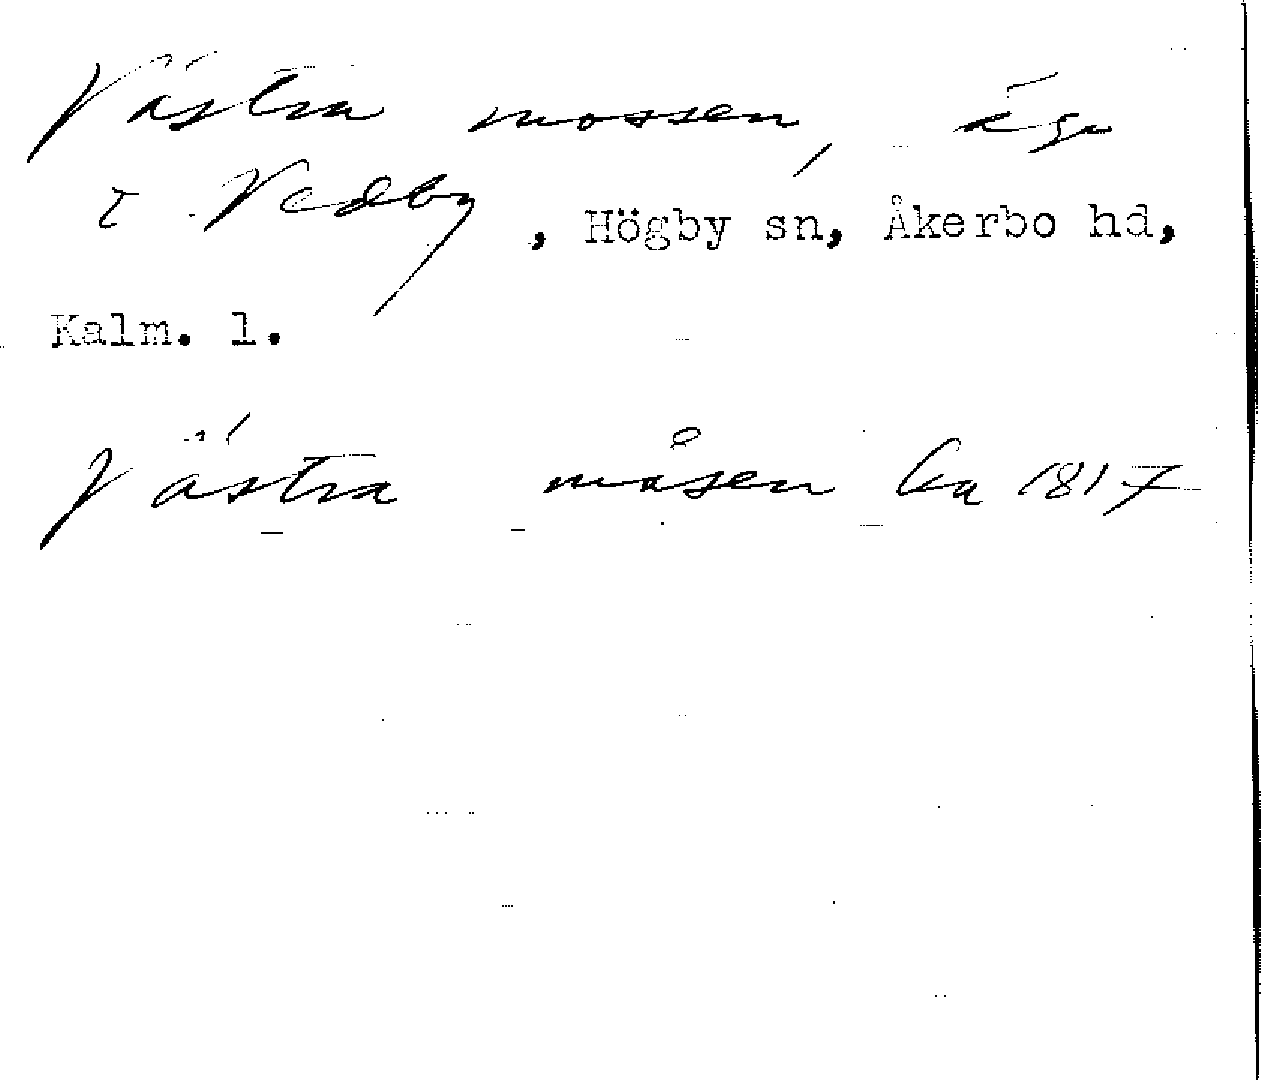 Västra mossen, äga
t Vedby, Högby sn, Åkerbo hd,
Kalm. l.
Västra måsen ka 1817